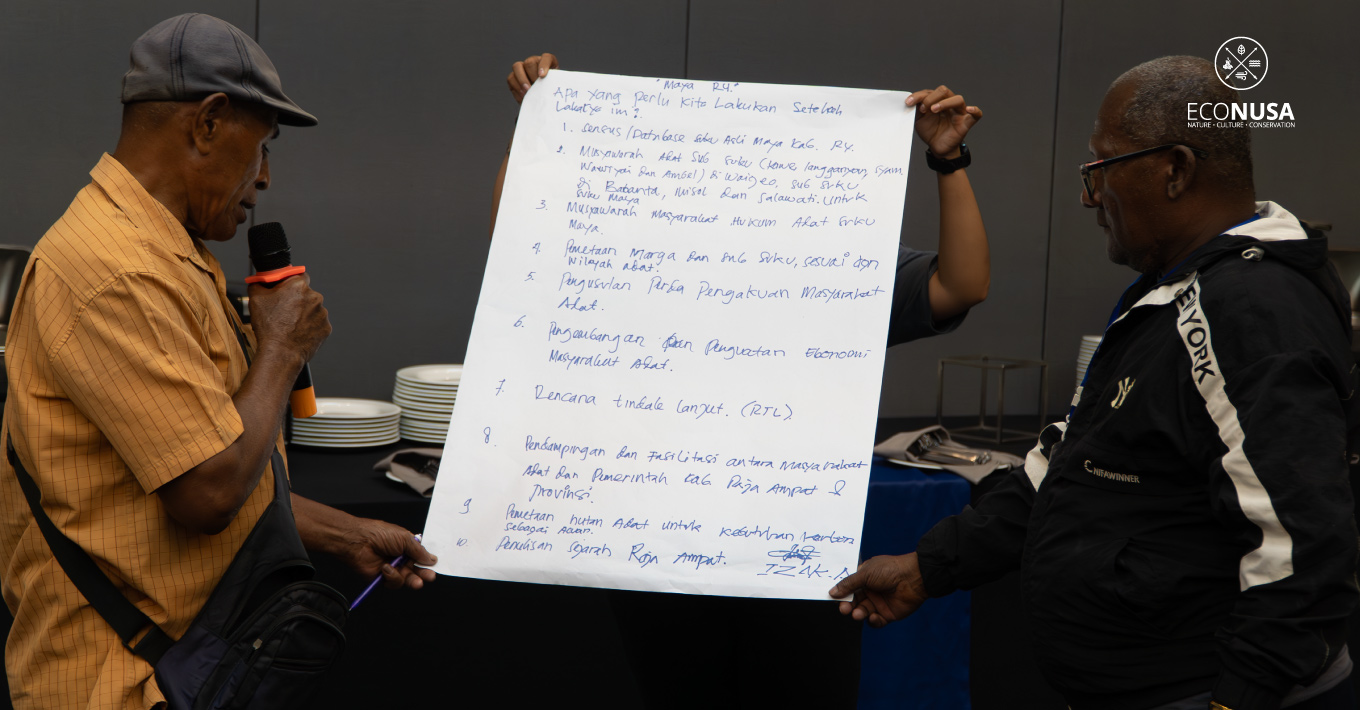 "Maya R4."
Apa yang perlu Kita Lakukan Setelah
Lokatya ini?.
1. Sensus/Database suku Asli Maya Kab. R4.
2. Musyawarah Adat Sub Suku (Kawe, langganyan,
Wawiyai dan Ambel) Di Waigeo. Sub Suku
di Batanta, Misol dan Salawati. Untuk
Suku Maya
3. Musyawarah Masyarakat Hukum Adat Suku
Maya.
4. Pemetaan Marga dan Sub Suku, sesuai dgn
Wilayah adat.
5. Pengusulan Perda Pengakuan Masyarakat
Adat.
6. Pengembangan Dan Penguatan Ekonomi
Masyarakat Adat.
7. Rencana tindak lanjut. (RTL)
8. Pendampingan dan Fasilitasi antara Masyarakat
Adat dan Pemerintah Kab Raja Ampat &
Provinsi.
9. Pemetaan hutan Adat untuk
sebagai Acuan.
10. Penulisan sejarah Raja Ampat.
IZAK.A
ECONUSA
NATURE • CULTURE • CONSERVATION
EW YORK
NY
NIFAWINNER